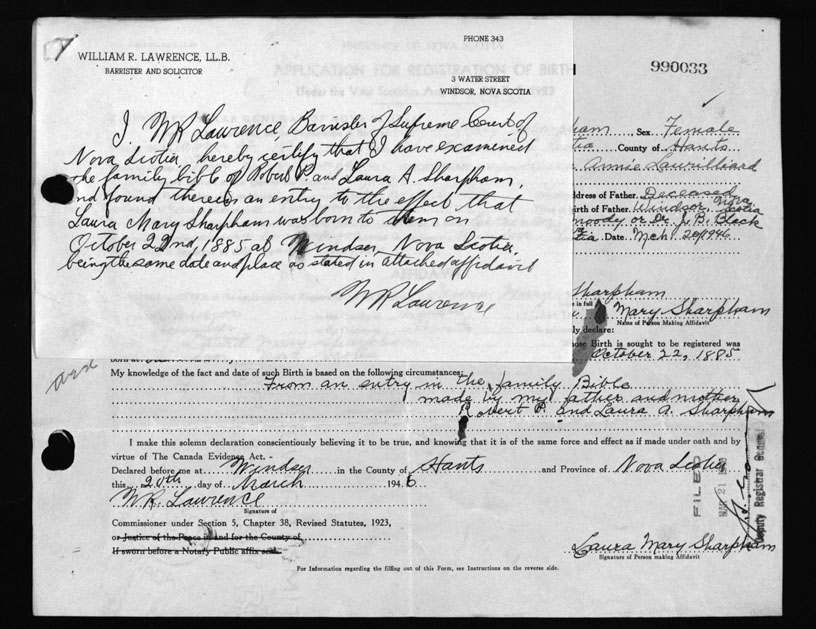 WILLIAM R. LAWRENCE, LL.B.
BARRISTER AND SOLICITOR
PHONE 343
3 WATER STREET
WINDSOR, NOVA SCOTIA
I, WR Lawrence, Barrister of Supreme Court of
Nova Scotia, hereby certify that I have examined
the family bible of Robert P. and Laura A. Sharpham,
and found therein an entry to the effect that
Laura Mary Sharpham was born to them on
October 22nd, 1885 at Windsor, Nova Scotia,
being the same date and place as stated in attached affidavit
WR Lawrence
990033
Sex Female
County of Hants
Annie Laurilliard
Address of Father Deceased
Birth of Father Windsor Nova Scotia
Moody or Dr. J. B. Black
Date Mch 20/1946
Sharpham
Mary Sharpham
Name of Person Making Affidavit
declare:
whose Birth is sought to be registered was
October 22, 1885
My knowledge of the fact and date of such Birth is based on the following circumstances:
From an entry in the family Bible
made by my father and mother
Robert P. and Laura A. Sharpham
I make this solemn declaration conscientiously believing it to be true, and knowing that it is of the same force and effect as if made under oath and by
virtue of The Canada Evidence Act. -
Declared before me at Windsor in the County of Hants and Province of Nova Scotia
this 20th day of March 1946
WR Lawrence
Signature of
Commissioner under Section 5, Chapter 38, Revised Statutes, 1923,
or Justice of the Peace in and for the County of
If sworn before a Notary Public affix seal.
FILED
MAR 21
Deputy Registrar General
Laura Mary Sharpham
Signature of Person making Affidavit
For Information regarding the filling out of this Form, see Instructions on the reverse side.